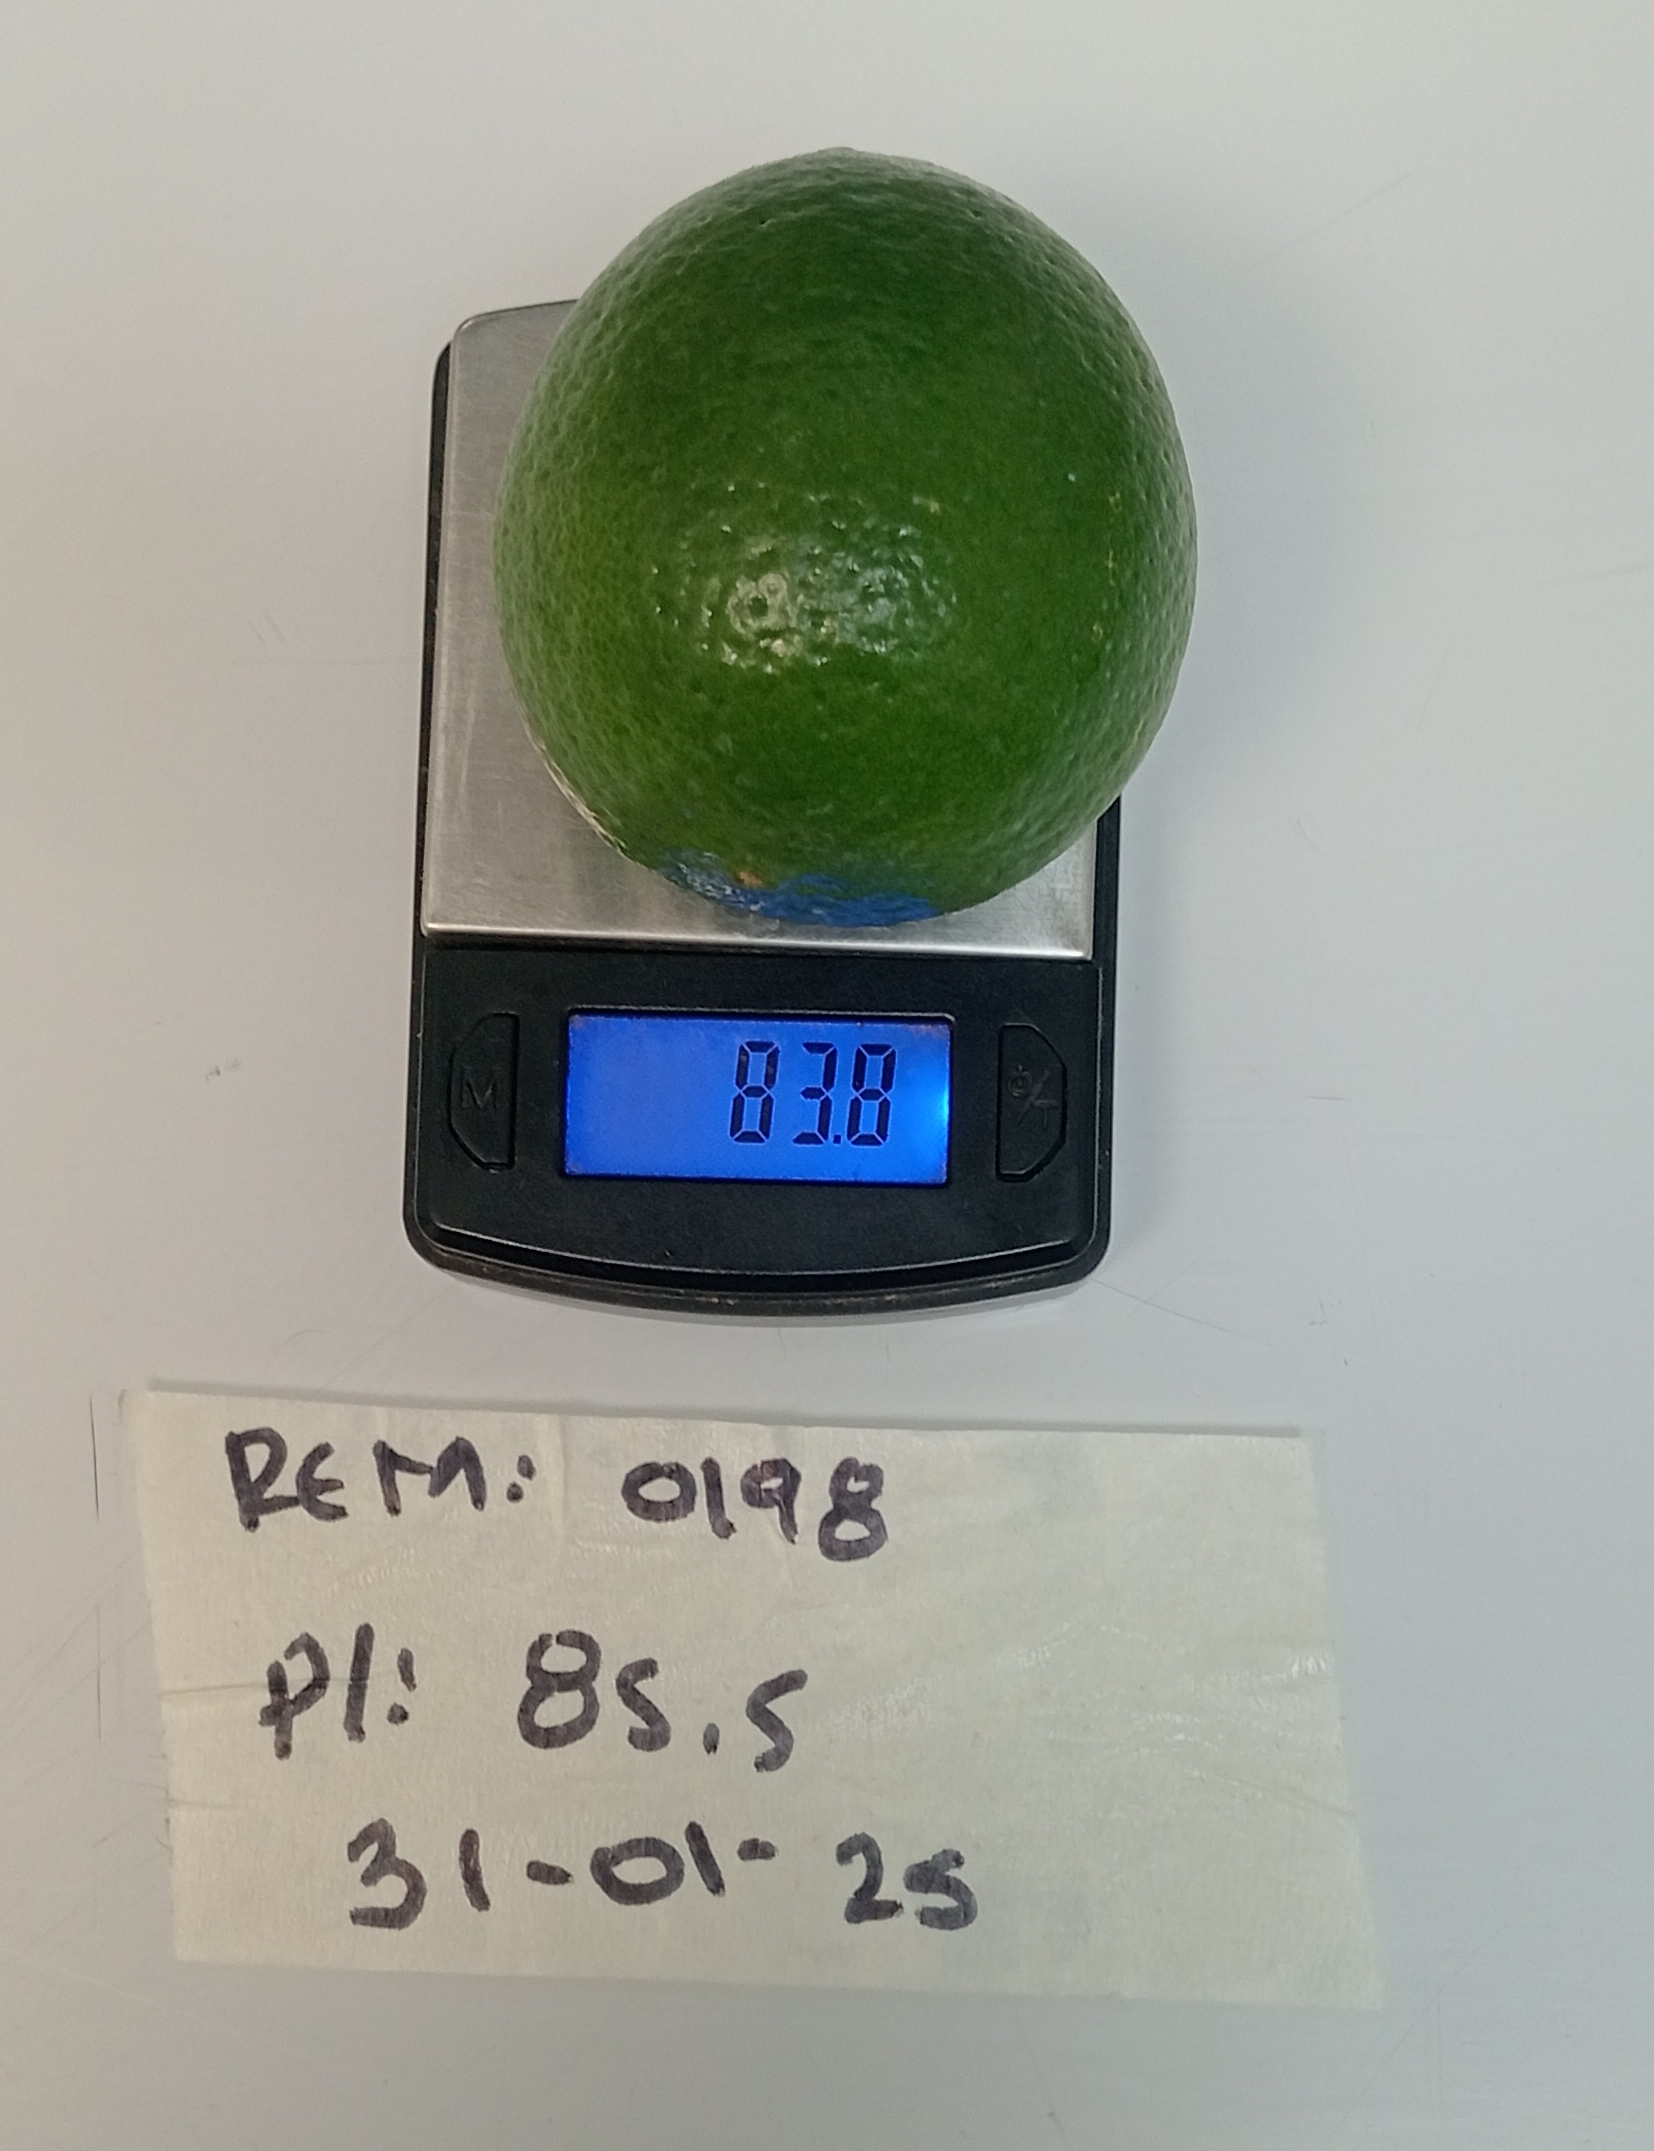 83.8
M
⏻/T
REM: 0198
P/: 85.5
31-01-25